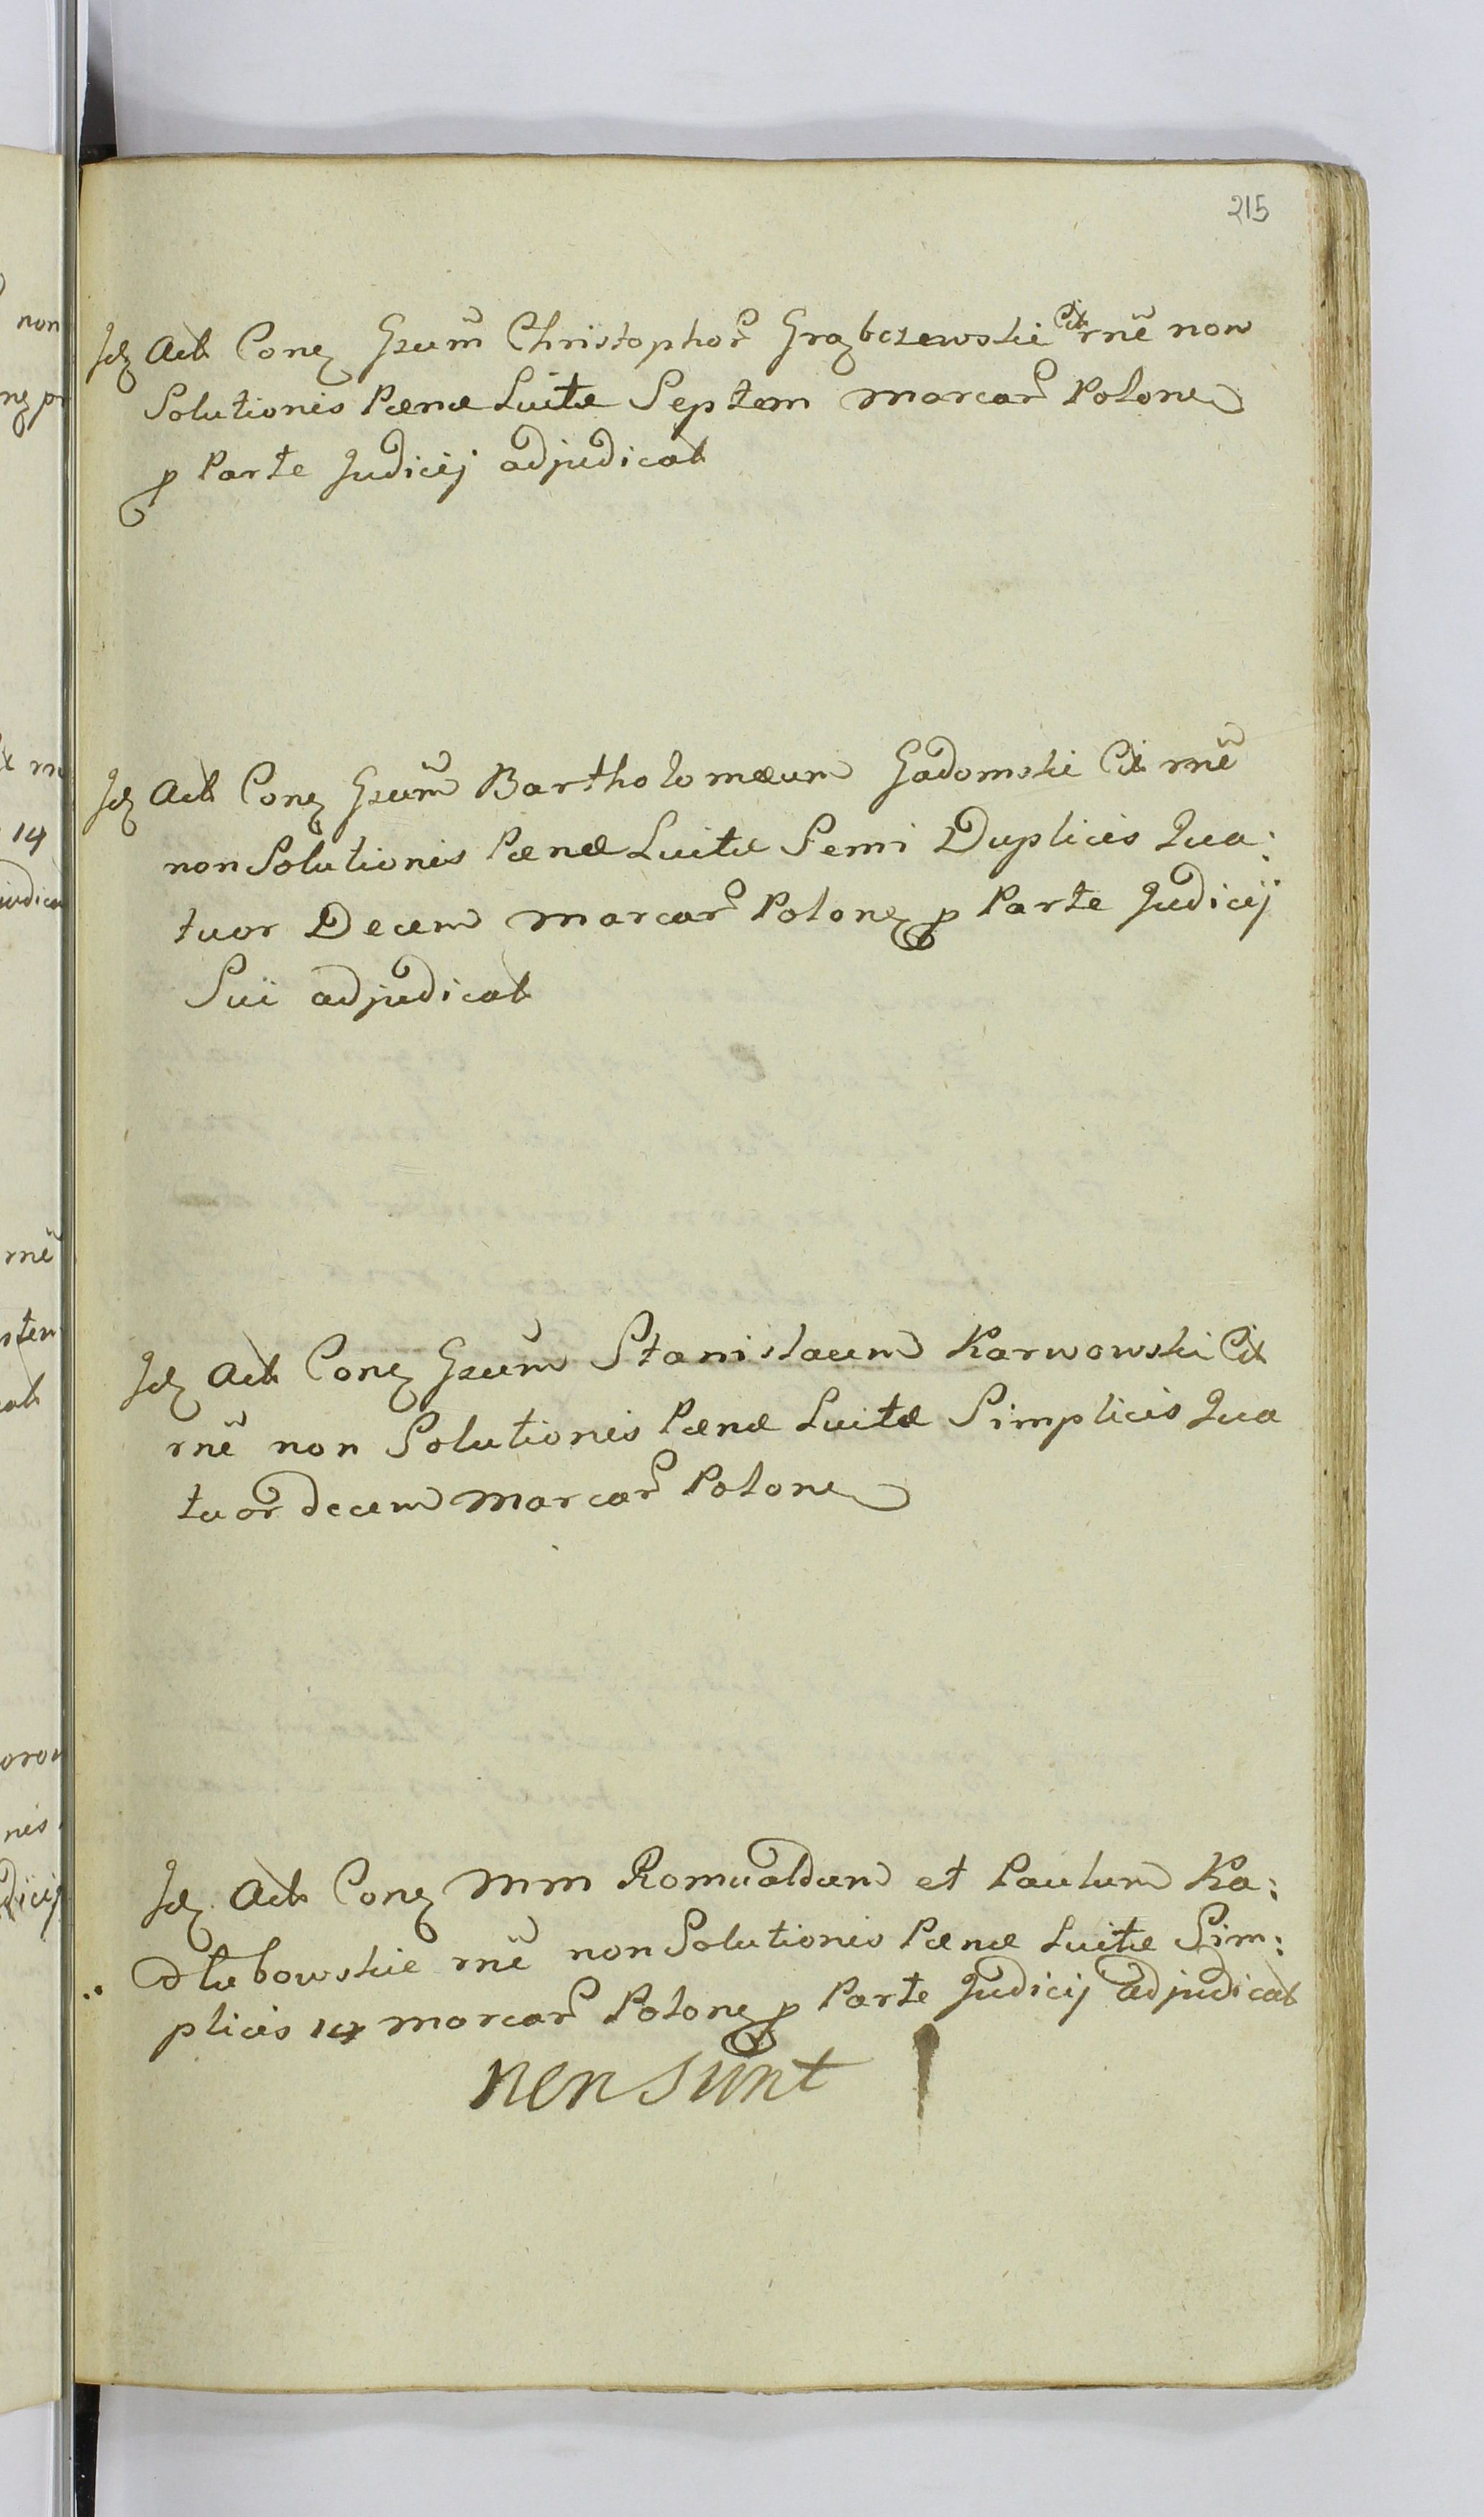 215
Jdz Act Conz Gsum Christophor Grabczewski Cit rne non
Solutionis Pænæ Luitæ Septem marcar Polone
p Parte Judicij adjudicat
Jdz Act Conz Gsum Bartholomæum Gadomski Cit rne
non Solutionis Pænæ Luitæ Semi Duplicis Qua:
tuor Decem marcar Polonz p Parte Judicij
Sui adjudicat
Jdz Act Conz Gsum Stanislaum Karwowski Cit
rne non Solutionis Pænæ Luitæ Simplicis Qua
tuor decem marcar Polone
Jdz Act Conz Mm Romualdum et Paulum Ka:
dłubowskie rne non Solutionis Pænæ Luitæ Sim:
plicis 14 marcar Polonz p Parte Judicij adjudicat
non sunt